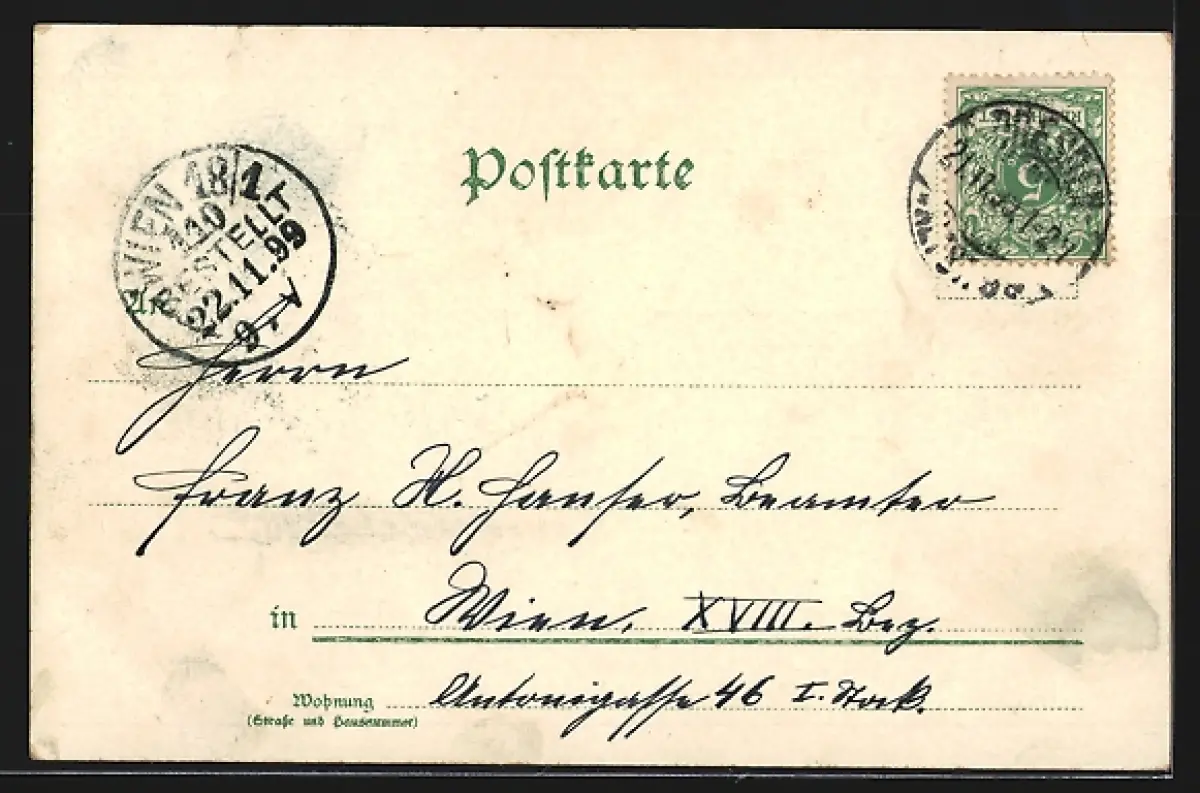 Postkarte
WIEN 18/1
110
BESTELLT
22.11.99
9. V
5
DRESDEN
21.11.99.
Herrn
Franz H. Hanser, Beamter
in Wien, XVIII. Bez.
Wohnung Antonigasse 46 I. Stock.
(Straße und Hausnummer)